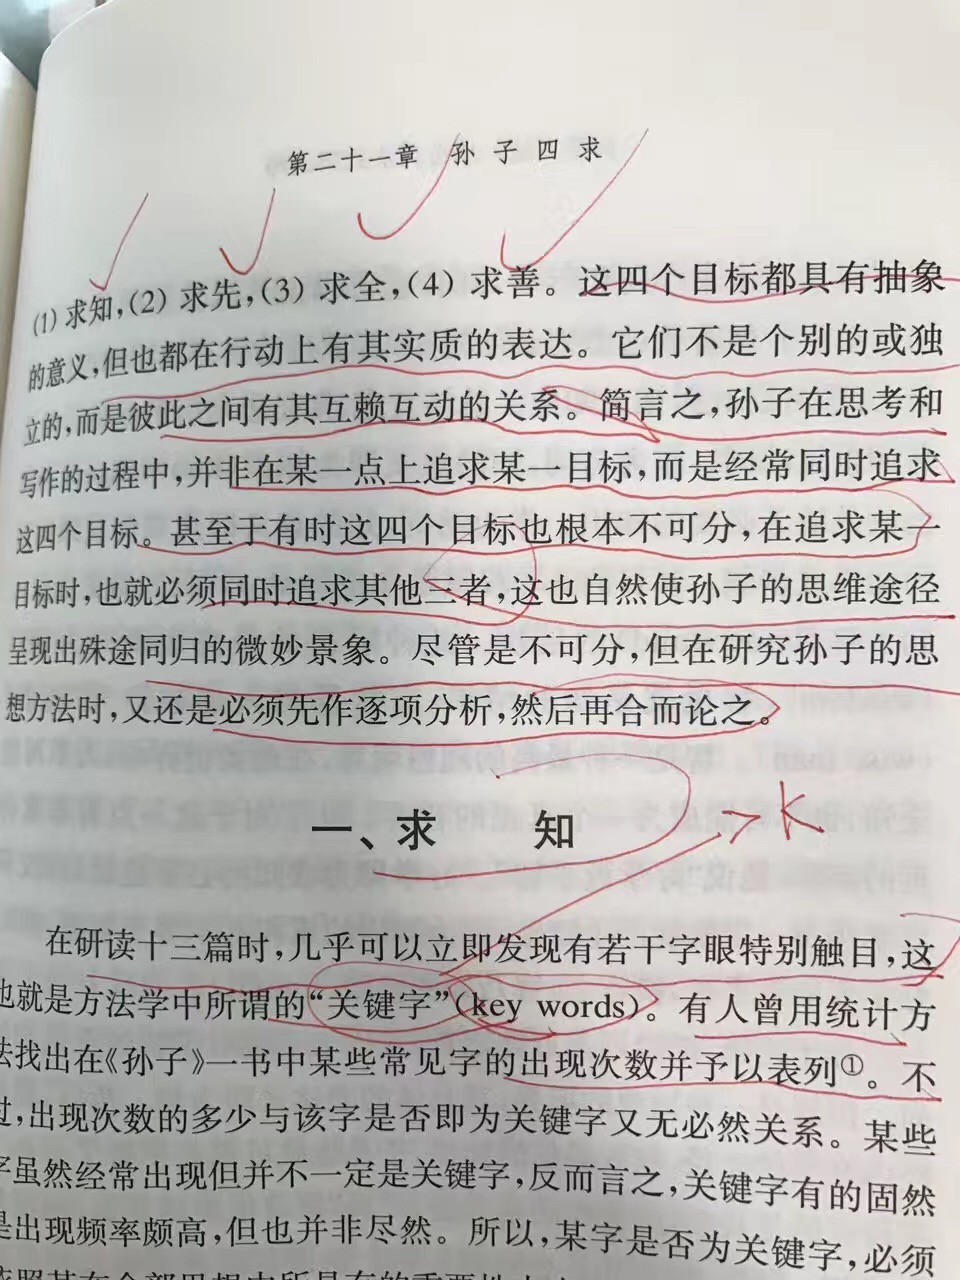 第二十一章 孙子四求
(1) 求知,(2) 求先,(3) 求全,(4) 求善。这四个目标都具有抽象
的意义,但也都在行动上有其实质的表达。它们不是个别的或独
立的,而是彼此之间有其互赖互动的关系。简言之,孙子在思考和
写作的过程中,并非在某一点上追求某一目标,而是经常同时追求
这四个目标。甚至于有时这四个目标也根本不可分,在追求某一
目标时,也就必须同时追求其他三者,这也自然使孙子的思维途径
呈现出殊途同归的微妙景象。尽管是不可分,但在研究孙子的思
想方法时,又还是必须先作逐项分析,然后再合而论之。
K
一、求 知
在研读十三篇时,几乎可以立即发现有若干字眼特别触目,这
也就是方法学中所谓的“关键字”(key words)。有人曾用统计方
法找出在《孙子》一书中某些常见字的出现次数并予以表列①。不
过,出现次数的多少与该字是否即为关键字又无必然关系。某些
字虽然经常出现但并不一定是关键字,反而言之,关键字有的固然
是出现频率颇高,但也并非尽然。所以,某字是否为关键字,必须